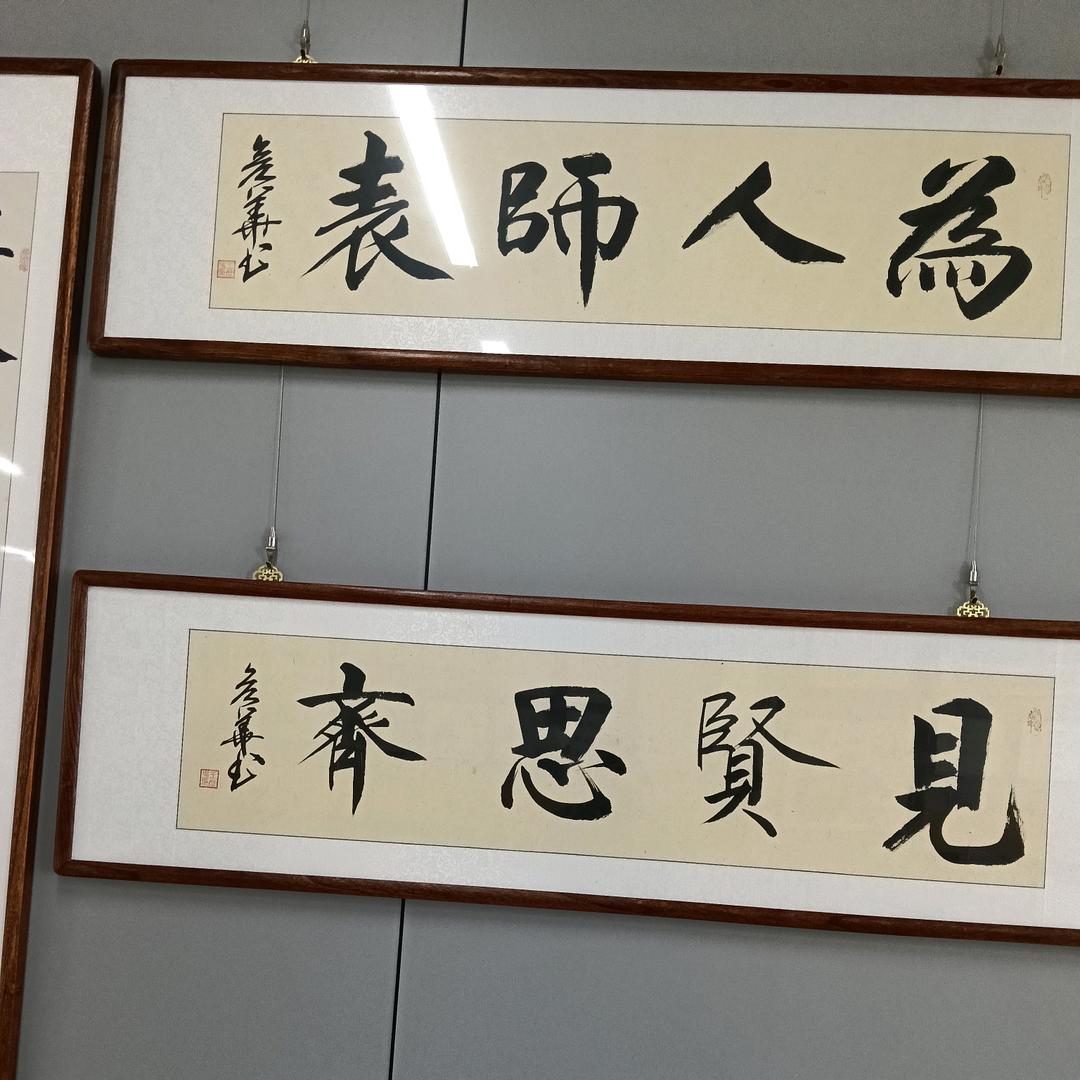 為人師表
見賢思齊